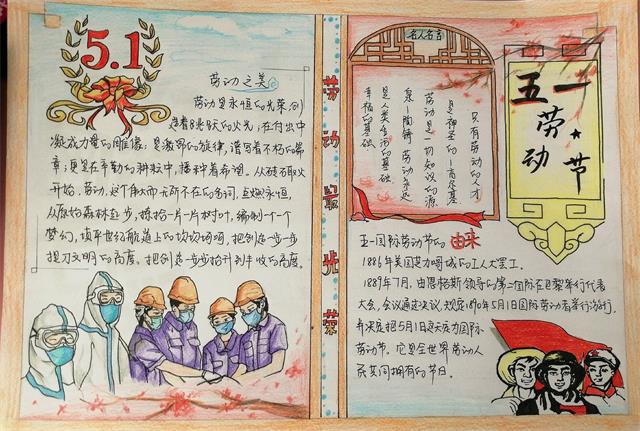 5.1
劳动之美
劳动是永恒的光荣,创
造着8条跃的火光;在付出中
凝成力量的雕像;是激昂的旋律,谱写着不朽的篇
章;更是在辛勤的耕耘中,播种着希望。从破石取火
开始,劳动,这个伟大而无所不在的名词,直燃永恒,
从原始森林起步,捡拾一片一片树叶,编制一个个
梦幻,填平世纪航道上的坎坎坷坷,把创造一步一步
提升文明的高度。把创造一步步抬升到丰收的高度。
劳动最光荣
名人名言
只有劳动的人才
是神圣的—高尔基
劳动是一切知识的源
泉—陶铸 劳动永远
是人类生活的基础,
幸福的基础
五一
劳动
节
五一国际劳动节的由来
1886年美国芝加哥城的工人大罢工。
1889年7月,由恩格斯领导的第二国际在巴黎举行代表
大会,会议通过决议,规定1890年5月1日国际劳动者举行游行,
并决定把5月1日这天定为国际
劳动节。它是全世界劳动人
民共同拥有的节日。